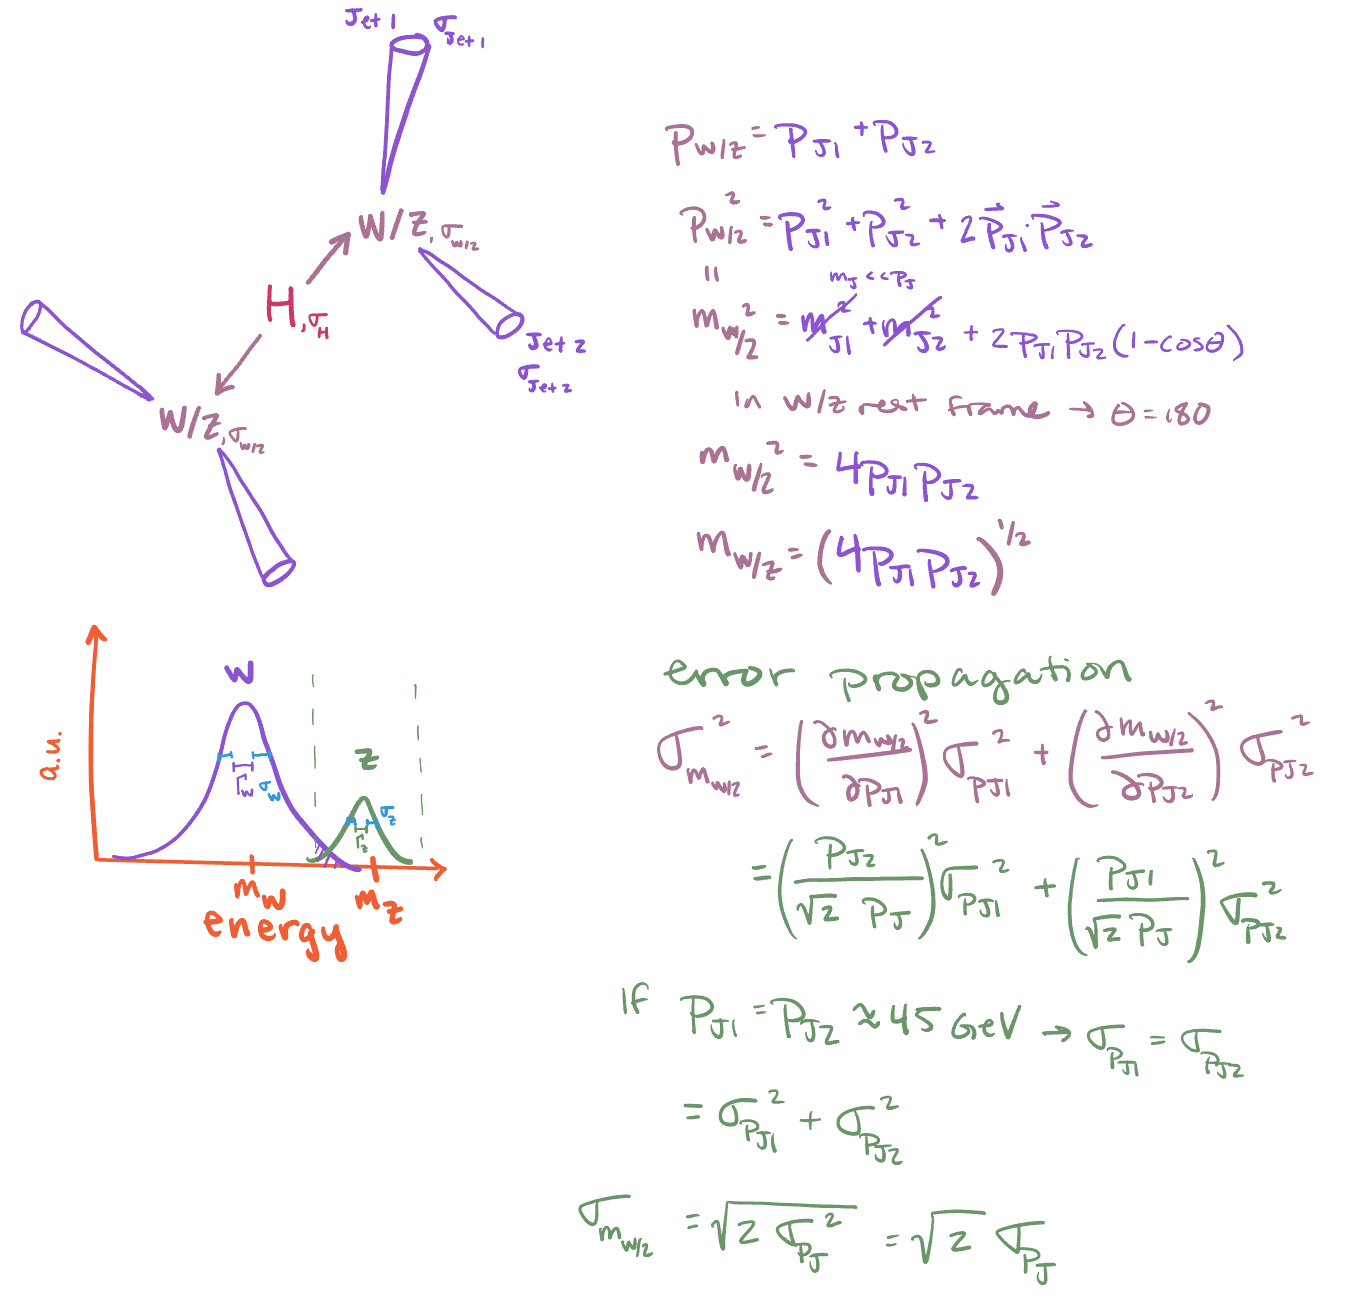 Jet 1 σ_Jet1
W/Z, σ_W/Z
H, σ_H
Jet 2
σ_Jet2
W/Z, σ_W/Z
P_W/Z = P_J1 + P_J2
P_W/Z² = P_J1² + P_J2² + 2 P⃗_J1 · P⃗_J2
||
m_J << P_J
m_W/Z² = m_J1² + m_J2² + 2 P_J1 P_J2 (1 - cosθ)
in W/Z rest frame → θ = 180
m_W/Z² = 4 P_J1 P_J2
m_W/Z = (4 P_J1 P_J2)^1/2
W
Z
Γ_W σ_W
Γ_Z σ_Z
a.u.
m_W m_Z
energy
error propagation
σ_m_W/Z² = (∂m_W/Z / ∂P_J1)² σ_PJ1² + (∂m_W/Z / ∂P_J2)² σ_PJ2²
= (P_J2 / √2 P_J)² σ_PJ1² + (P_J1 / √2 P_J)² σ_PJ2²
If P_J1 = P_J2 ≈ 45 GeV → σ_PJ1 = σ_PJ2
= σ_PJ1² + σ_PJ2²
σ_m_W/Z = √(2 σ_PJ²) = √2 σ_PJ